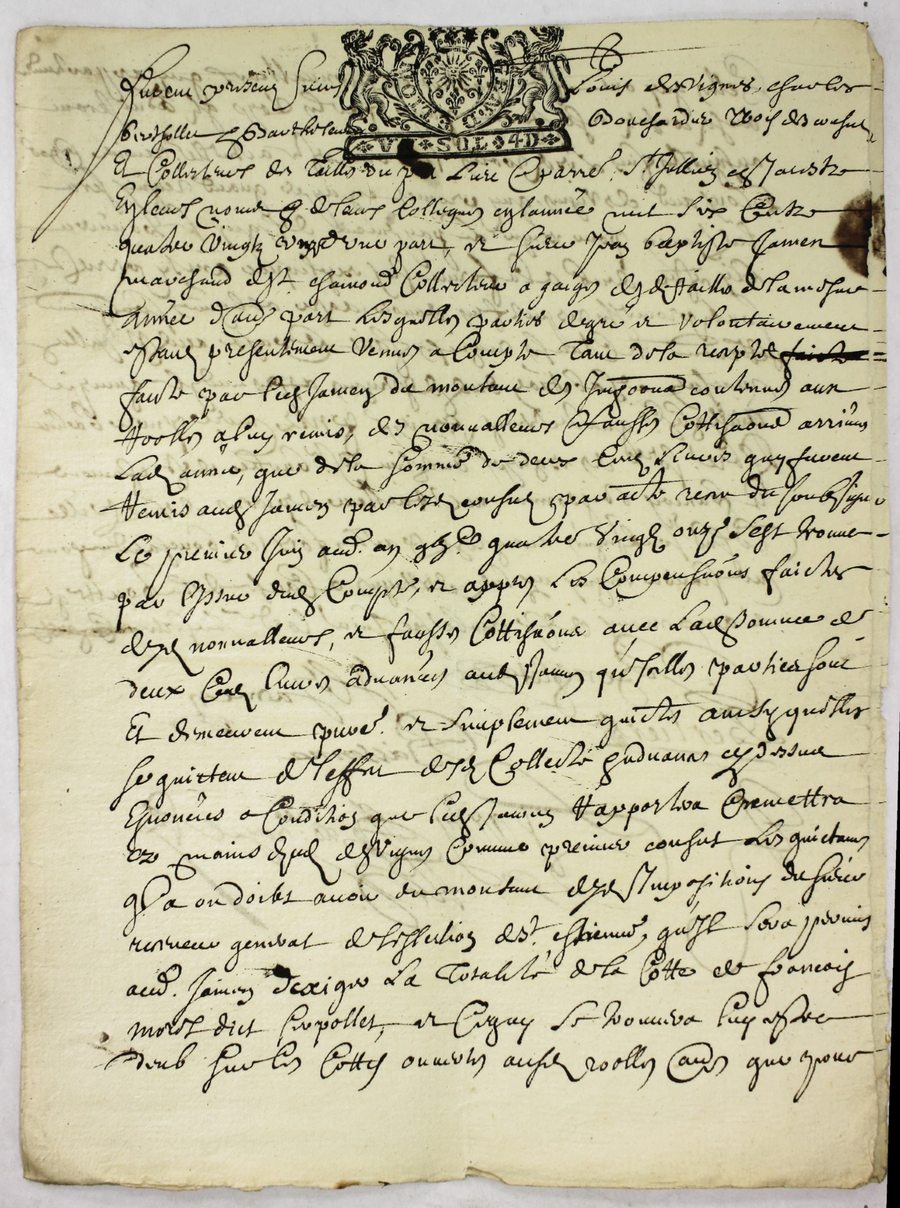 Furent presents Sieurs Louis desvignes, charles
berthollet & Barthelemy Bouchardier trois des consuls
VN SOL 4D
Et Collecteurs des Tailles du p lieu & parr. St Jullien en Jarestz
Eyleurs noms & de leurs Collegues eylannée mil six Centz
quatre vingtz unze d'une part, et sieur Jean baptiste Jamen
marchand de St. chamond Collecteur a gaiges desd. tailles de la mesme
Année d'autre part Lesquelles parties de gré et volontairement
estant presentement venues a Compte Tant de la recepte faicte
faicte par led Jamen du montant des Impositions contenues aux
Roolles a luy remis, des nonvalleurs & fausses Cottisations arrivées
Lad année, que de la somme de deux Cent Livres quy furent
Remis aud Jamen par lesd consuls par acte receu du soubsigné
Le premier Juin aud. an quatre vingtz onze s'est trouvé
par Issue dud Compte, et apprès Les Compensations faictes
desd nonvalleurs, et fausses Cottisations avec Lad somme de
deux Cent livres advancées aud Jamen qu'Icelles parties sont
Et demeurent pure. et simplement quictes ainsy quelles
se quittent de l'effet desd Collecte & advances cy dessus
Enoncées a Condition que led Jamen Rapportera & remettra
ez mains dud desvignes Comme premier consul Les quictances
qu'Il a ou doibt avoir du montant desd Impositions du sieur
receveur general de l'eslection de St. estienne, qu'Il sera permis
aud. Jamen d'exiger La Totalité de la Cotte de francois
mores dict Crepollet, et Ce quy se trouvera luy estre
deub sur les Cottes ouvertes ausd roolles que pour